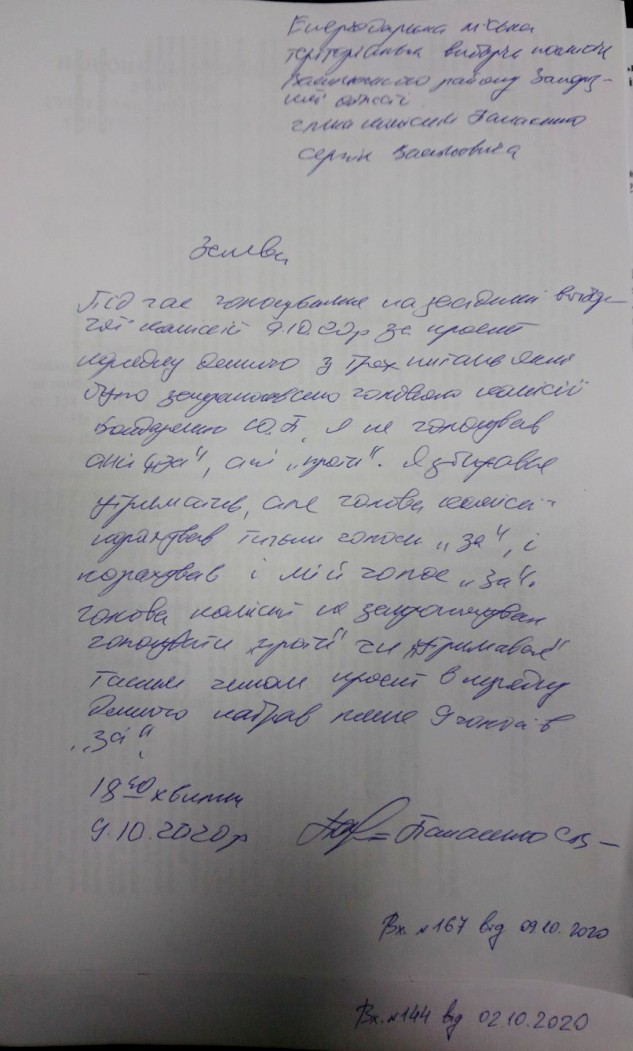 Енергодарська міська
територіальна виборча комісія
району Запорізь-
кої області
члена комісії Панасенко
Сергія Васильовича
Заява
Під час голосування на засіданні виборчої
чої комісії 9.10.20р за проєкт
порядку денного з трьох питань які
було запропоновано головою комісії
Бондаренко Ю.П, я не голосував
ані „за", ані „проти". Я збирався
утриматись, але голова комісії
порахував тільки голоси „за", і
порахував і мій голос „за".
голова комісії не запропонував
голосувати „проти" чи „утримався"
Таким чином проєкт порядку
денного набрав лише 9 голосів
„за"
18 40 хвилин
9.10.2020р Панасенко С.В.
Вх. №167 від 09.10.2020
Вх.№144 від 02.10.2020